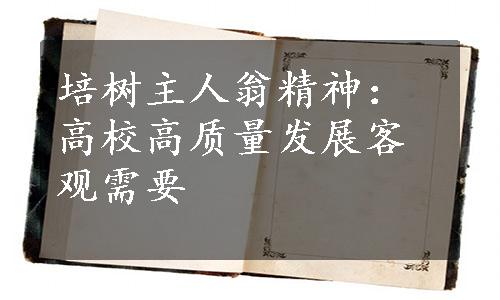 培树主人翁精神：
高校高质量发展客
观需要